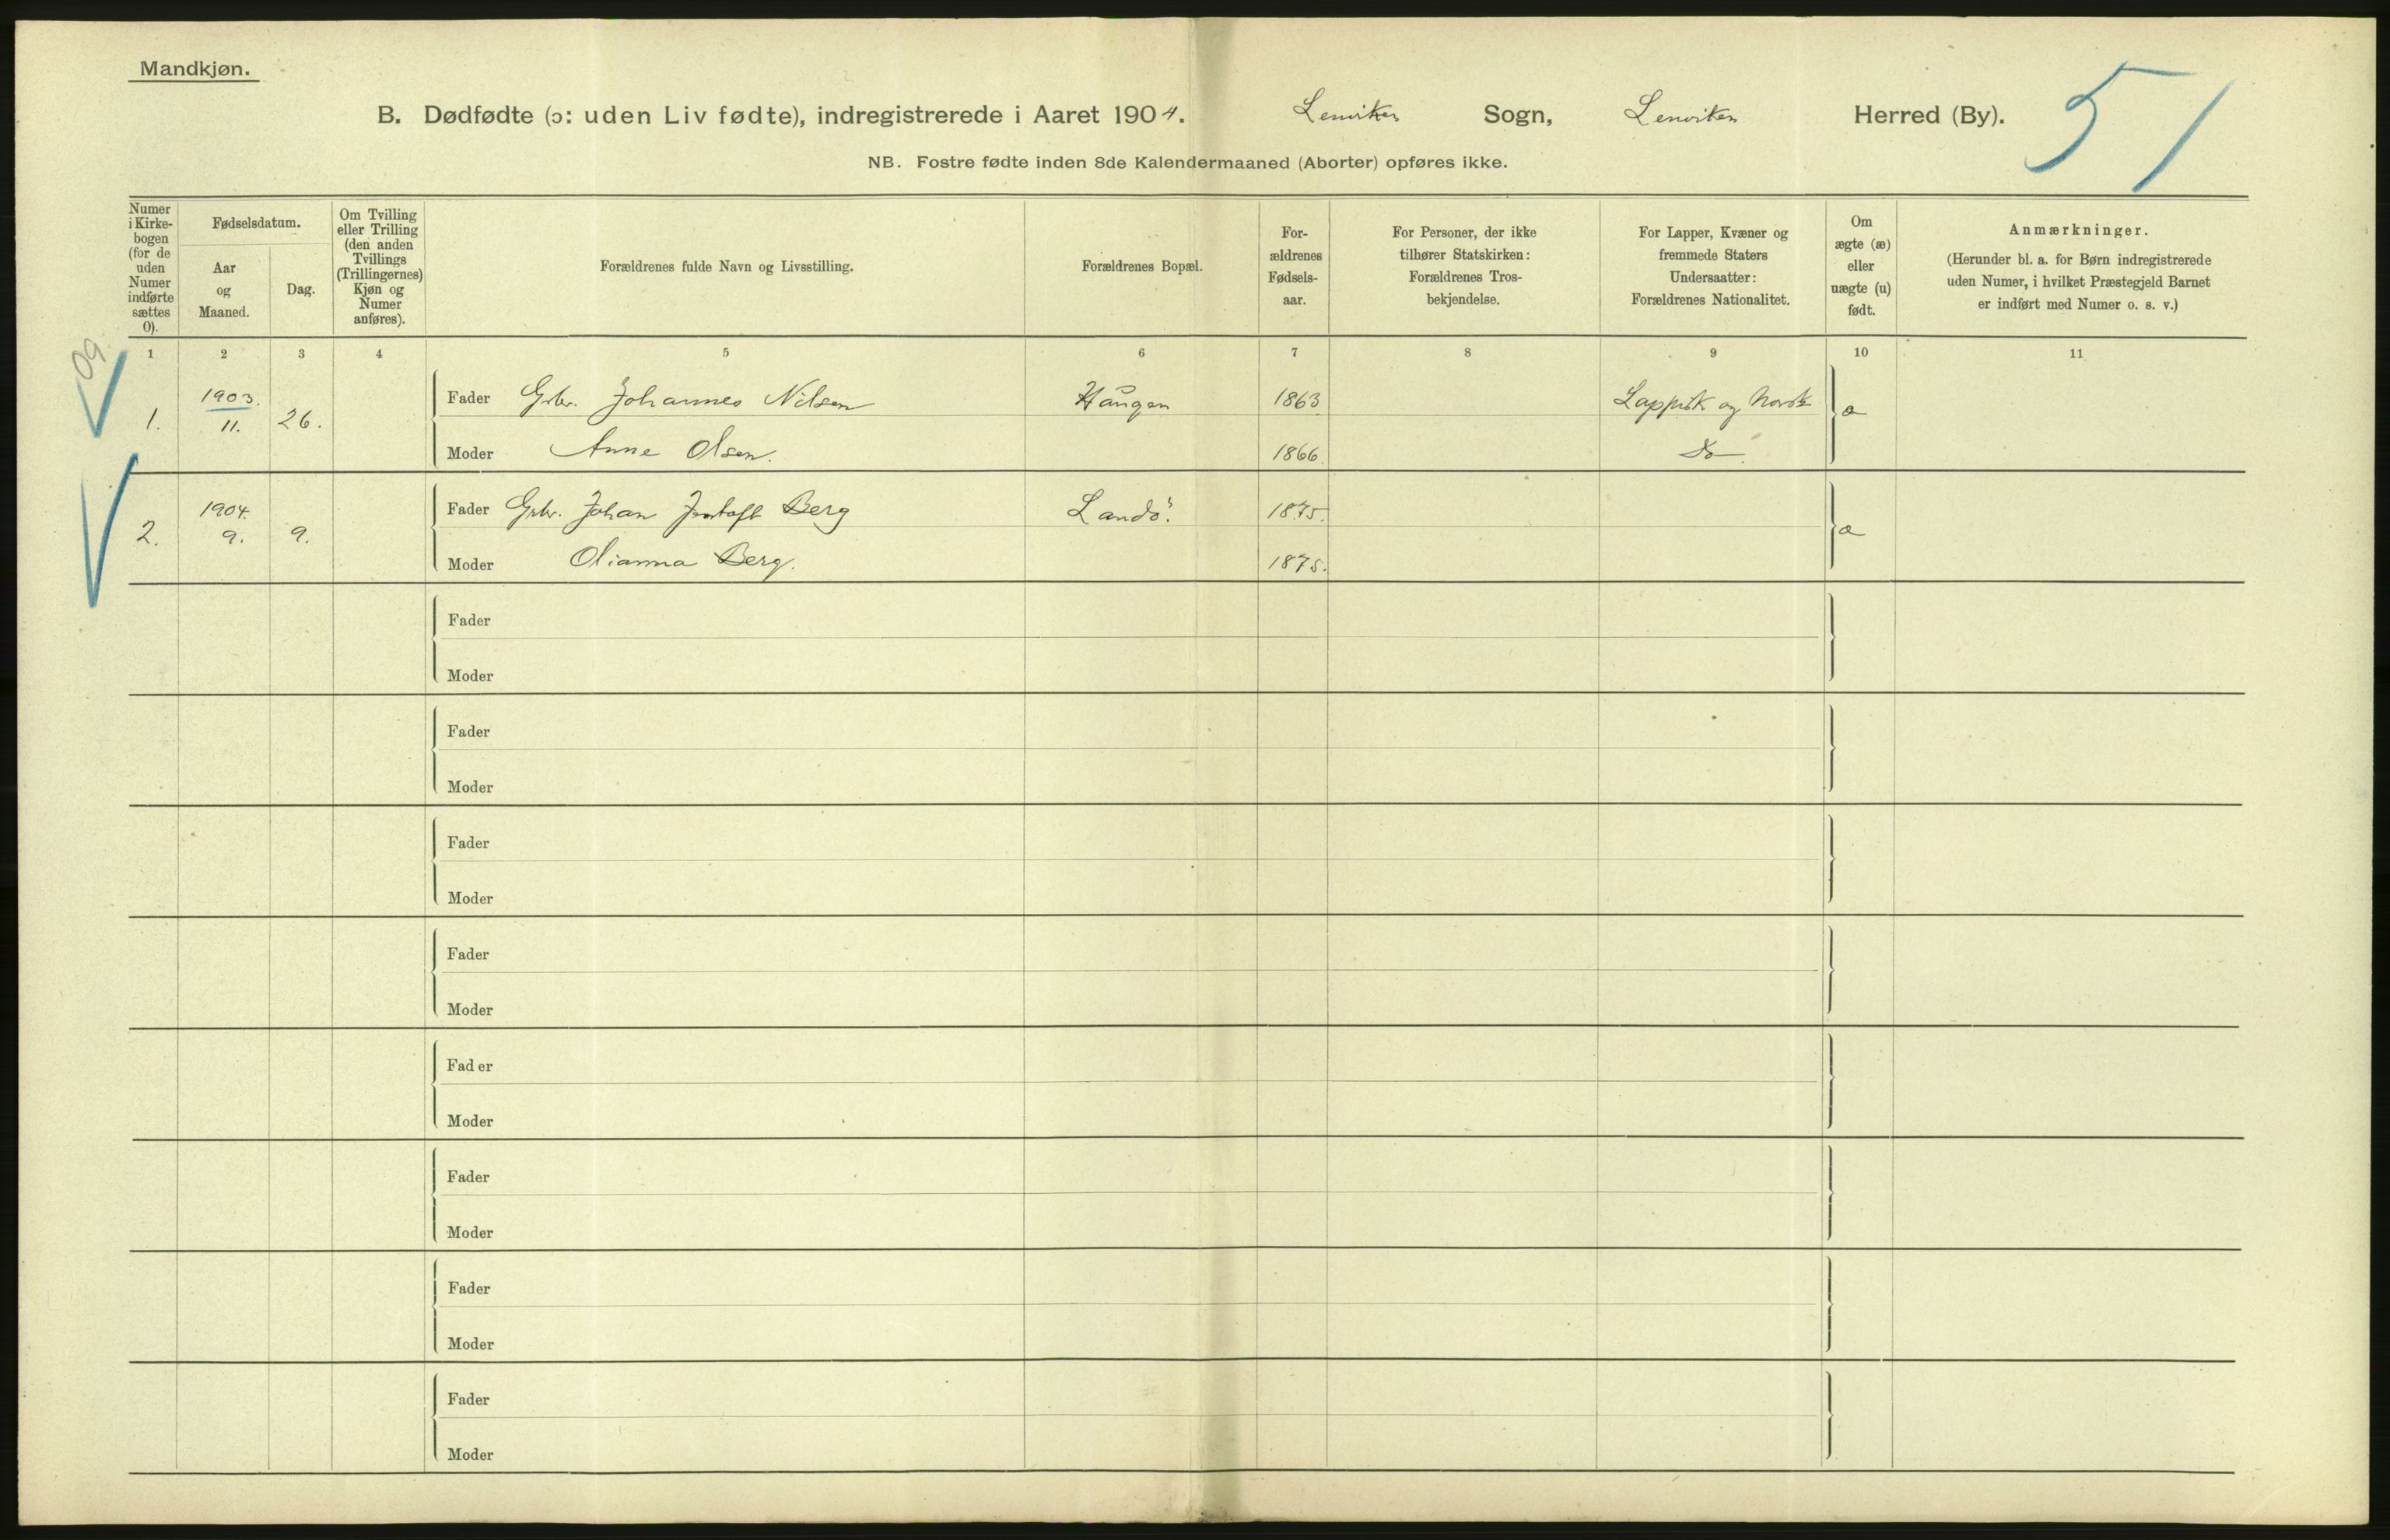 Mandkjøn.
B. Dødfødte (ɔ: uden Liv fødte), indregistrerede i Aaret 1904. Lenviken Sogn, Lenviken Herred (By). 51
NB. Fostre fødte inden 8de Kalendermaaned (Aborter) opføres ikke.
Numer i Kirke-bogen (for de uden Numer indførte sættes 0).
Fødselsdatum.
Aar og Maaned.
Dag.
Om Tvilling eller Trilling (den anden Tvillings (Trillingernes) Kjøn og Numer anføres).
Forældrenes fulde Navn og Livsstilling.
Forældrenes Bopæl.
For-ældrenes Fødsels-aar.
For Personer, der ikke tilhører Statskirken: Forældrenes Tros-bekjendelse.
For Lapper, Kvæner og fremmede Staters Undersaatter: Forældrenes Nationalitet.
Om ægte (æ) eller uægte (u) født.
Anmærkninger.
(Herunder bl. a. for Børn indregistrerede uden Numer, i hvilket Præstegjeld Barnet er indført med Numer o. s. v.)
1 2 3 4 5 6 7 8 9 10 11
1. 1903. 11. 26. Fader Gbr. Johannes Nilsen Haugen 1863 Lappisk og Norsk æ
Moder Anne Olsen. 1866. Do
2. 1904. 9. 9. Fader Gbr. Johan Berg Landö. 1875. æ
Moder Olianna Berg. 1875.
Fader
Moder
Fader
Moder
Fader
Moder
Fader
Moder
Fader
Moder
Fader
Moder
Fader
Moder
Fader
Moder